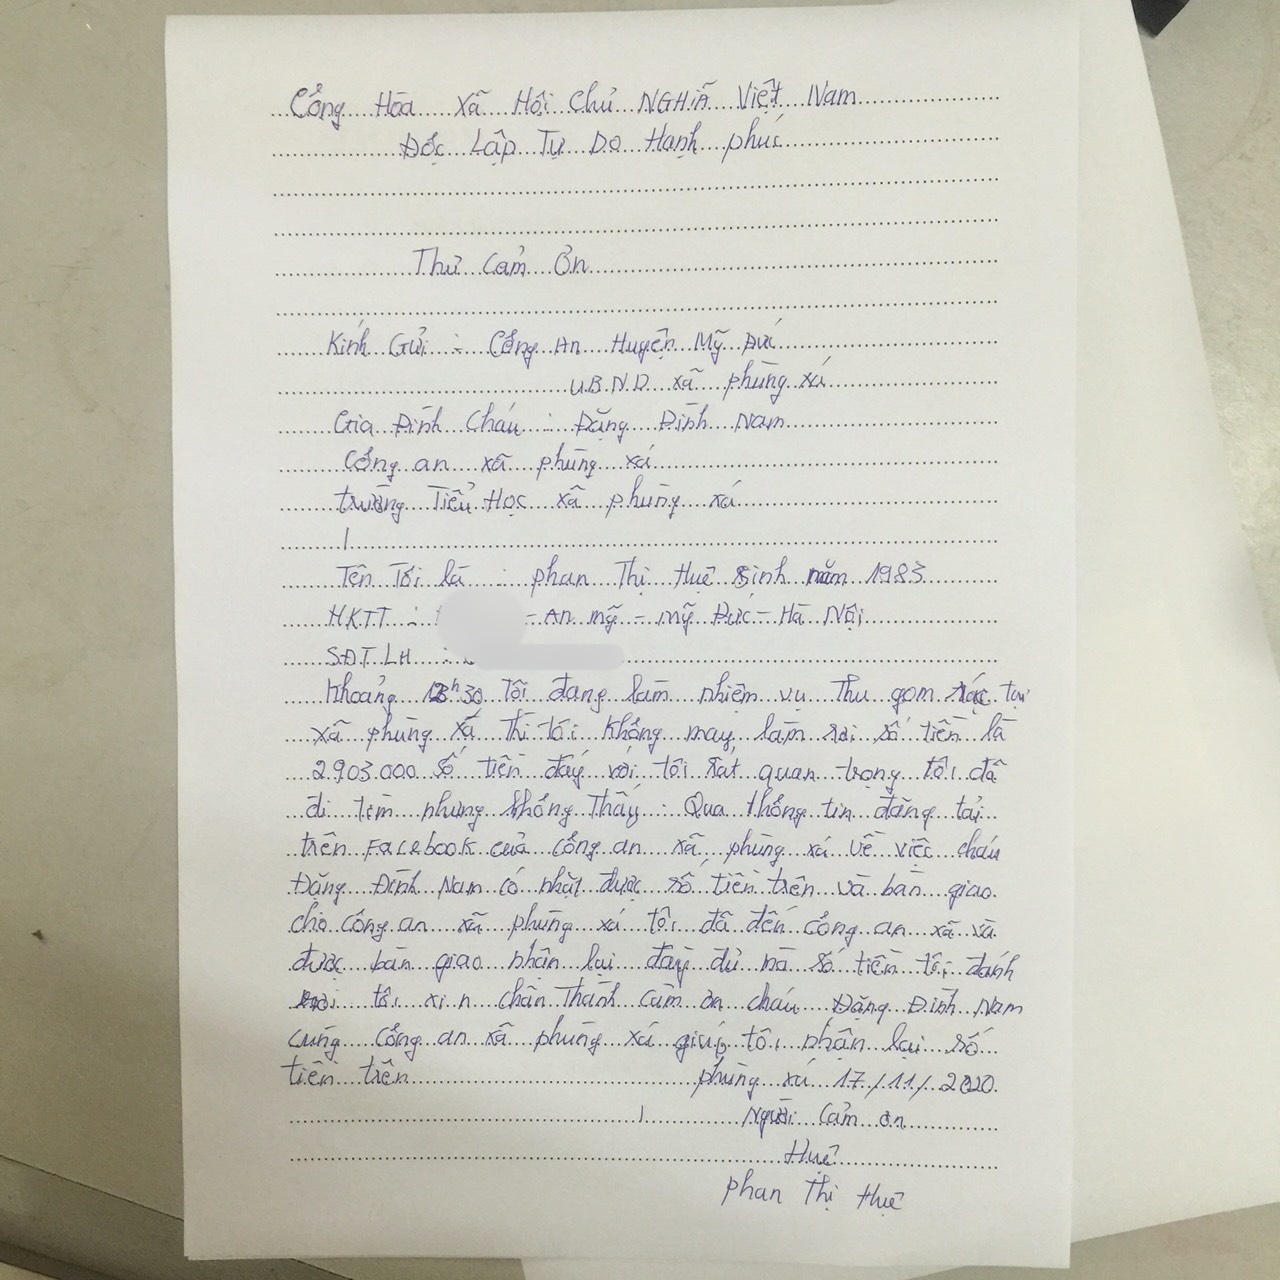 Cộng Hòa Xã Hội Chủ NGHĩa Việt Nam
Độc Lập Tự Do Hạnh phúc
Thư Cảm Ơn
Kính Gửi : Công An Huyện Mỹ Đức
U.B.N.D xã phùng xá
Gia Đình Cháu : Đặng Đình Nam
Công an xã phùng xá
trường Tiểu Học xã phùng xá
Tên Tôi là : phan Thị Huệ sinh năm 1983
HKTT : - An mỹ - mỹ Đức - Hà Nội
SĐT LH :
Khoảng 30 Tôi đang làm nhiệm vụ Thu gom rác tại
xã phùng xá Thì tôi không may làm rơi số tiền là
2.903.000 Số tiền đấy với tôi rất quan trọng tôi đã
đi tìm nhưng không Thấy : Qua thông tin đăng tải
trên Facebook của công an xã phùng xá về việc cháu
Đặng Đình Nam có nhặt được số tiền trên và bàn giao
cho công an xã phùng xá tôi đã đến công an xã và
được bàn giao nhận lại đầy đủ mà số tiền tôi đánh
rơi tôi xin chân Thành Cảm ơn cháu Đặng Đình Nam
cùng Công an xã phùng xá giúp tôi nhận lại số
tiền trên phùng xá 17/11/2020
Người Cảm ơn
Huệ
phan Thị Huệ